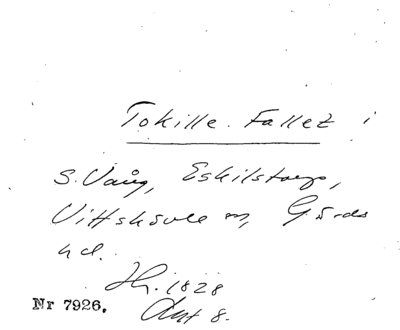 Tokille. Fallet i
S. Vång, Eskilstorp,
Vittskövle sn, Gärds
hd.
Hs. 1828
Akt 8.
Nr 7926.